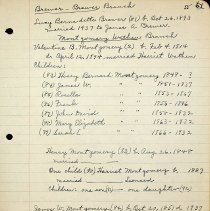 Brewer - Brewer Branch 61
Lucy Bernadette Brewer (#1) b. Oct 26, 1893
married 1937 to James A. Brewer.
Montgomery Wathen Branch
Valentine B. Montgomery (#2) b. Feb 4 1814
d. April 12, 1894 married Harriet Wathen
Children:
(#2) Henry Bernard Montgomery 1849 - ?
(#3) James W. " 1851-1937
(#4) Rosella " 1853-1867
(#5) Frank " 1856-1926
(#6) John David " 1858-1932
(#7) Mary Elizabeth " 1863-1932
(#8) Sarah E. " 1866-1932
Henry Montgomery (#2) b. Aug 26, 1849
married
One child (#2) Harriet Montgomery b. 1889
married Simcoe
Children: one son one daughter
James W. Montgomery (#3) b. Oct 20, 1851 d. 1937